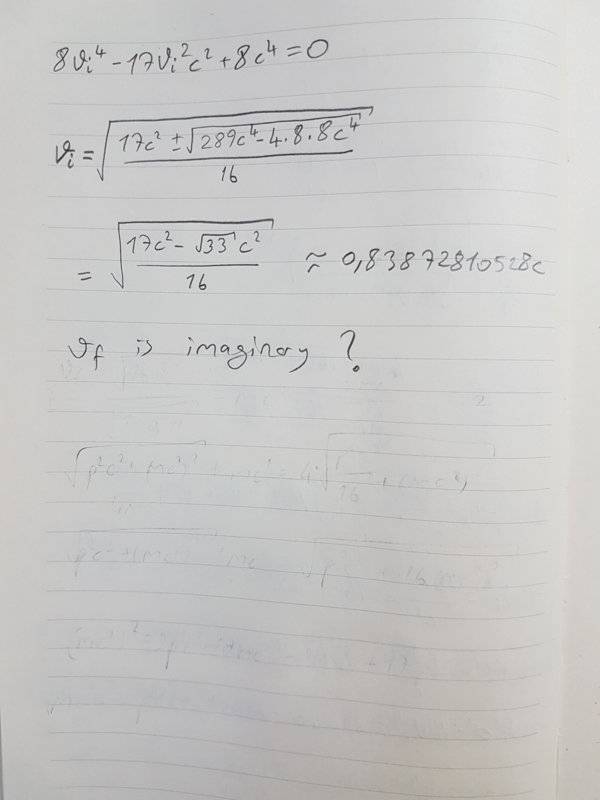 8ϑᵢ⁴ - 17ϑᵢ²c² + 8c⁴ = 0
ϑᵢ = √((17c² ± √(289c⁴ - 4·8·8c⁴))/16)
= √((17c² - √33 c²)/16) ≈ 0,83872810528c
ϑf is imaginary ?